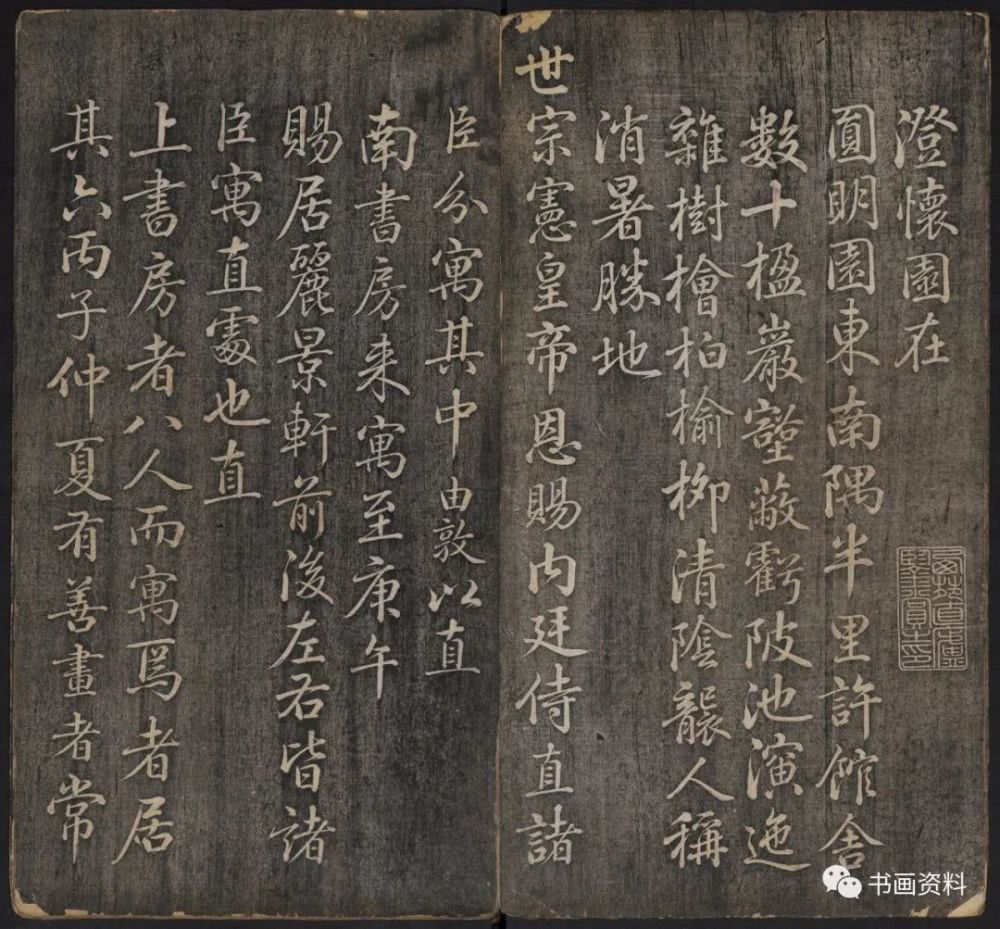 澄懷園在
圓明園東南隅半里許館舍
數十楹巖壑蔽虧陂池演迤
雜樹檜柏榆柳清陰襲人稱
消暑勝地
世宗憲皇帝恩賜内廷侍直諸
臣分寓其中由敦以直
南書房来寓至庚午
賜居麗景軒前後左右皆諸
臣寓直處也直
上書房者八人而寓焉者居
其六丙子仲夏有善畫者常
书画资料